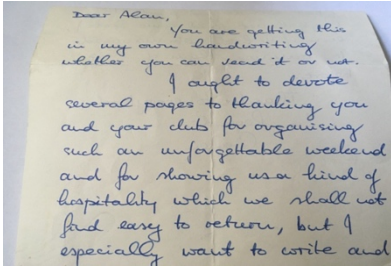 Dear Alan,
You are getting this
in my own handwriting
whether you can read it or not.
I ought to devote
several pages to thanking you
and your club for organising
such an unforgettable weekend
and for showing us a kind of
hospitality which we shall not
find easy to return, but I
especially want to write and